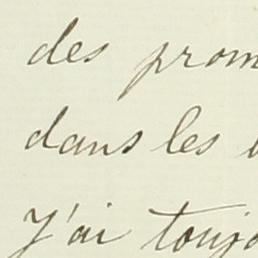 des prom
dans les
J'ai toujo